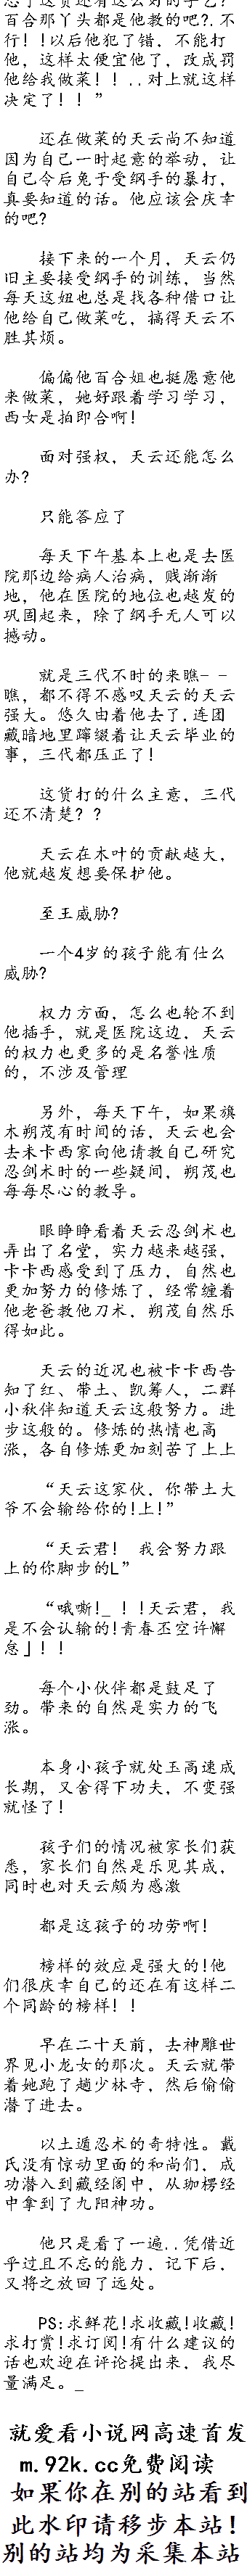 忘了这货还有这么好的手艺？
百合那丫头都是他教的吧?.不
行！!以后他犯了错，不能打
他，这样太便宜他了，改成罚
他给我做菜！！..对上就这样
决定了！！”
还在做菜的天云尚不知道
因为自己一时起意的举动，让
自己令后免于受纲手的暴打，
真要知道的话。他应该会庆幸
的吧?
接下来的一个月，天云仍
旧主要接受纲手的训练，当然
每天这妞也总是找各种借口让
他给自己做菜吃，搞得天云不
胜其烦。
偏偏他百合姐也挺愿意他
来做菜，她好跟着学习学习，
西女是拍即合啊！
面对强权，天云还能怎么
办?
只能答应了
每天下午基本上也是去医
院那边给病人治病，贱渐渐
地，他在医院的地位也越发的
巩固起来，除了纲手无人可以
撼动。
就是三代不时的来瞧- -
瞧，都不得不感叹天云的天云
强大。悠久由着他去了.连团
藏暗地里蹿缀着让天云毕业的
事，三代都压正了!
这货打的什么主意，三代
还不清楚？？
天云在木叶的贡献越大，
他就越发想要保护他。
至王威胁?
一个4岁的孩子能有仕么
威胁?
权力方面，怎么也轮不到
他插手，就是医院这边，天云
的权力也更多的是名誉性质
的，不涉及管理
另外，每天下午，如果旗
木朔茂有时间的话，天云也会
去未卡西家向他请教自己研究
忍剑术时的一些疑间，朔茂也
每每尽心的教导。
眼睁睁看着天云忍剑术也
弄出了名堂，实力越来越强，
卡卡西感受到了压力，自然也
更加努力的修炼了，经常缠着
他老爸教他刀术，朔茂自然乐
得如此。
天云的近况也被卡卡西告
知了红、带土、凯筹人，二群
小秋伴知道天云这般努力。进
步这般的。修炼的热情也高
涨，各自修炼更加刻苦了上上
“天云这家伙，你带土大
爷不会输给你的!上!”
“天云君！ 我会努力跟
上的你脚步的L”
“哦嘶!_ ！!天云君，我
是不会认输的!青春丕空许懈
怠」！！
每个小伙伴都是鼓足了
劲。带来的自然是实力的飞
涨。
本身小孩子就处玉高速成
长期，又舍得下功夫，不变强
就怪了!
孩子们的情况被家长们获
悉，家长们自然是乐见其成，
同时也对天云颇为感激
都是这孩子的功劳啊！
榜样的效应是强大的!他
们很庆幸自己的还在有这样二
个同龄的榜样！！
早在二十天前，去神雕世
界见小龙女的那次。天云就带
着她跑了趟少林寺，然后偷偷
潜了进去。
以土遁忍术的奇特性。戴
氏没有惊动里面的和尚们，成
功潜入到藏经阁中，从珈楞经
中拿到了九阳神功。
他只是看了一遍..凭借近
乎过且不忘的能力，记下后，
又将之放回了远处。
PS:求鲜花!求收藏!收藏!
求打赏!求订阅!有什么建议的
话也欢迎在评论提出来，我尽
量满足。_
就爱看小说网高速首发
m.92k.cc免费阅读
如果你在别的站看到
此水印请移步本站！
别的站均为采集本站